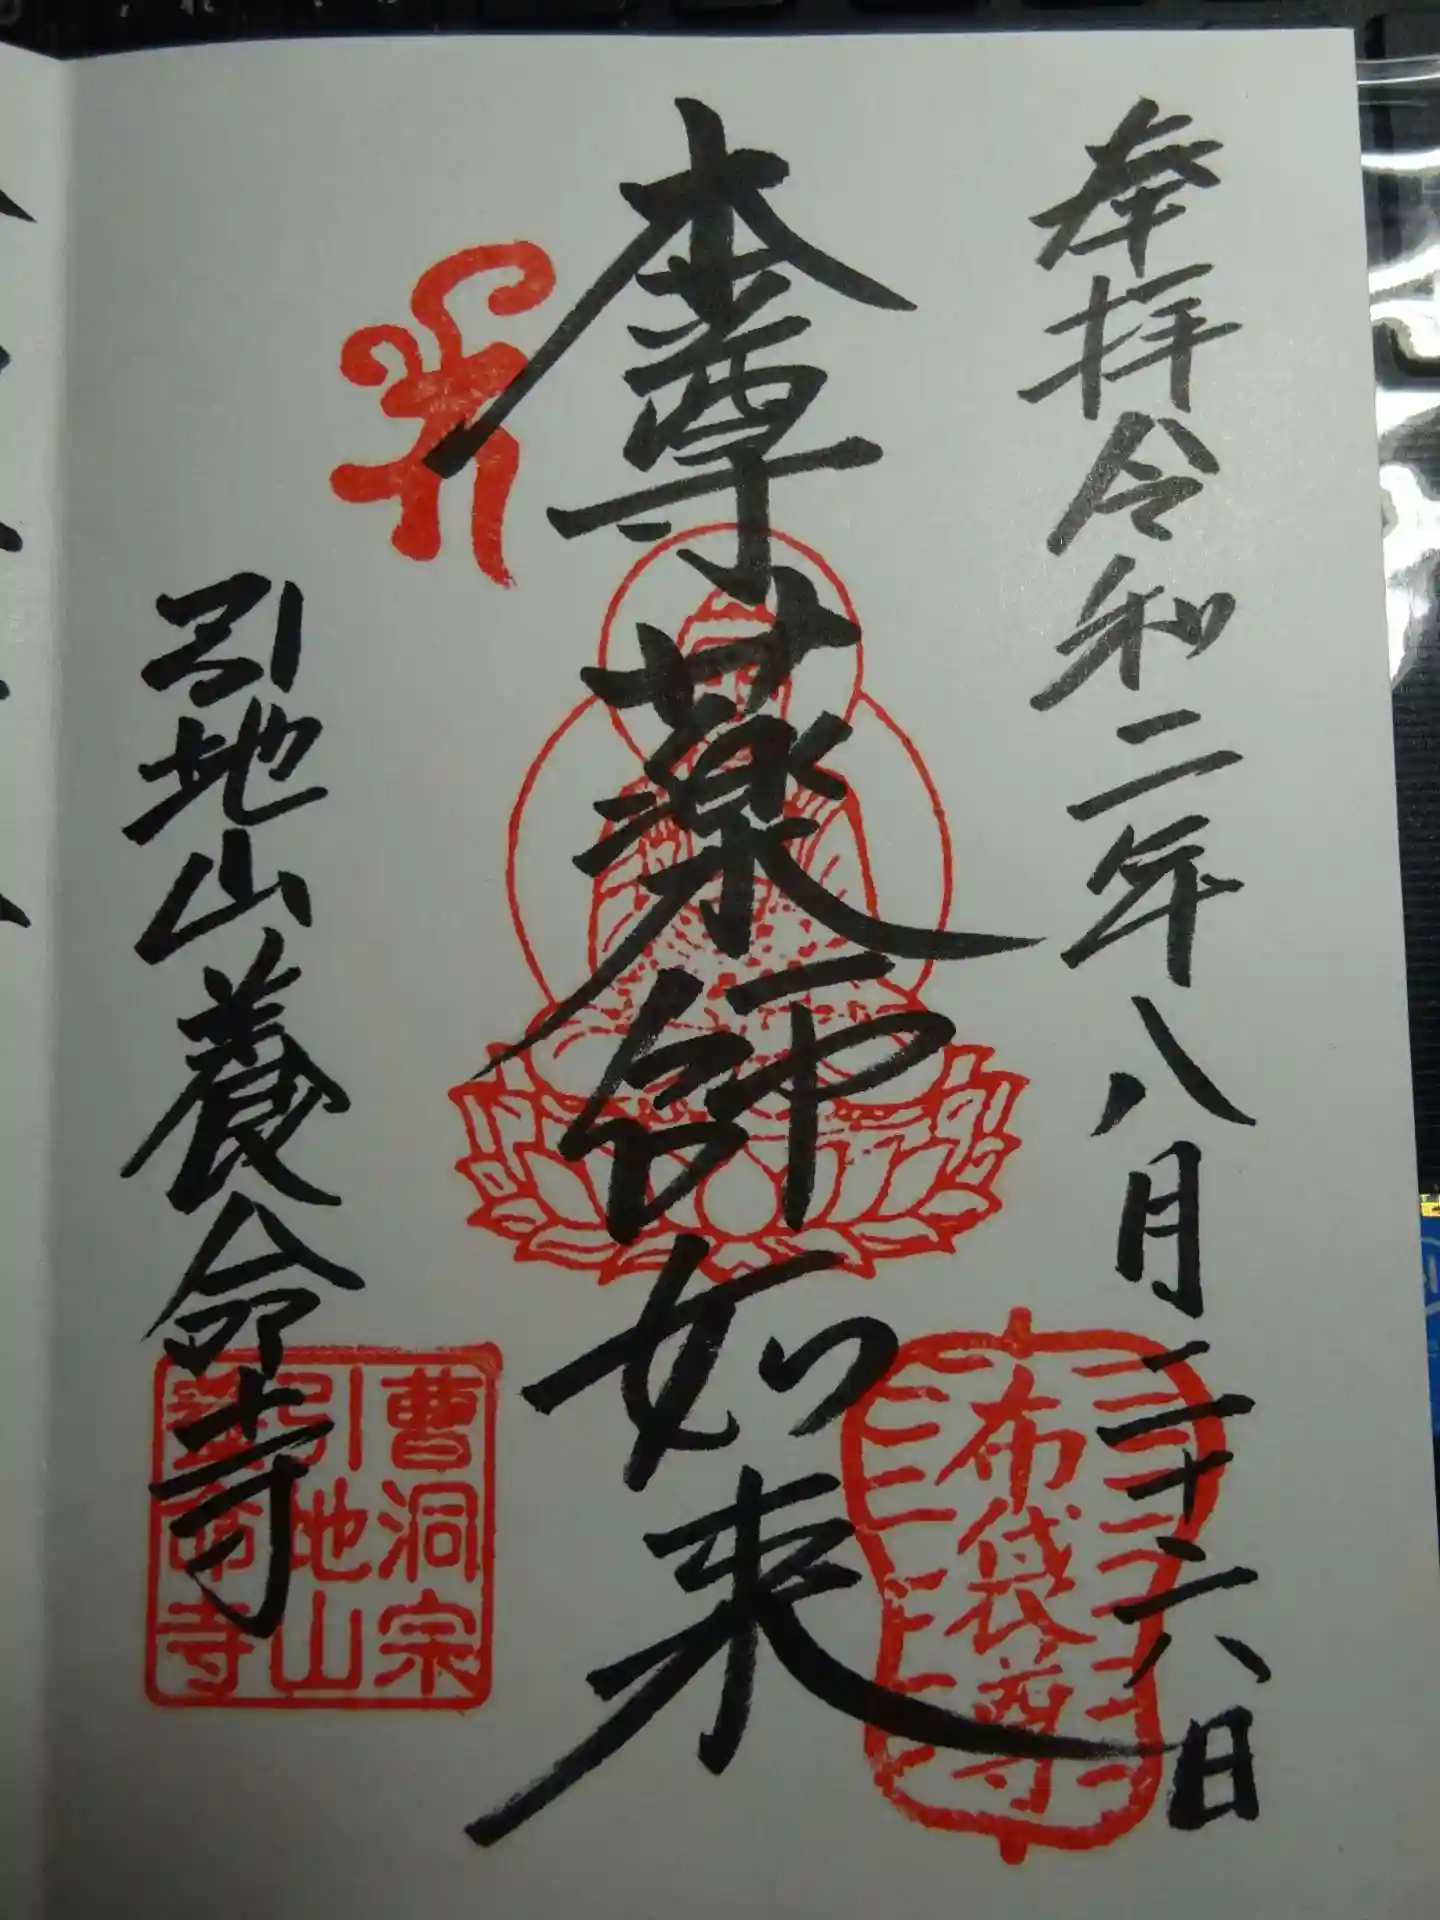 奉拝 令和二年八月二十六日
本尊薬師如来
引地山養命寺
布袋尊
曹洞宗
引地山
養命寺